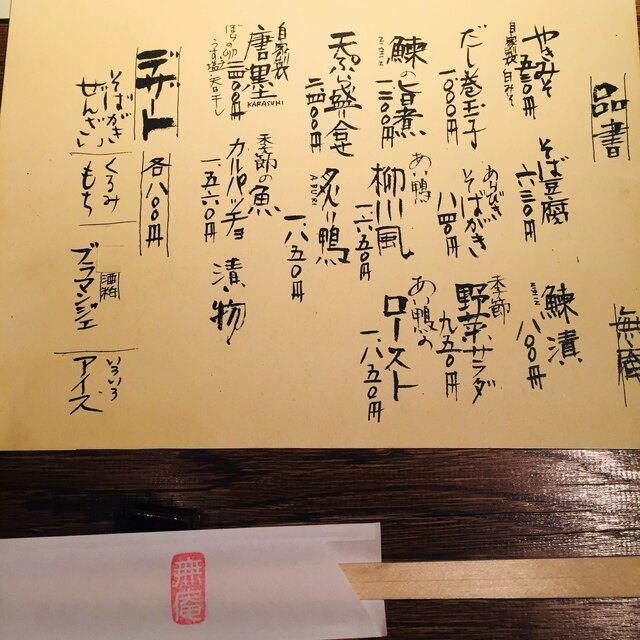 品書
無庵
やきみそ
五五〇円
自家製 白みそ
そば豆腐
六三〇円
鰊漬
ニシン
八〇〇円
だし巻玉子
一、〇〇〇円
あらびき
そばがき
八四〇円
季節
野菜サラダ
九五〇円
鰊の旨煮
ニシン
一、三〇〇円
あい鴨
柳川風
一、六五〇円
あい鴨の
ロースト
一、八五〇円
天ぷら盛り合せ
二、四〇〇円
炙り鴨
ABURI
一、八五〇円
自家製
唐墨
KARASUMI
うす塩 天日干し
季節の魚
カルパッチョ
一、五六〇円
漬物
デザート
各八〇〇円
そばがき
ぜんざい
くるみ
もち
酒粕
ブラマンジェ
いろいろ
アイス
無庵